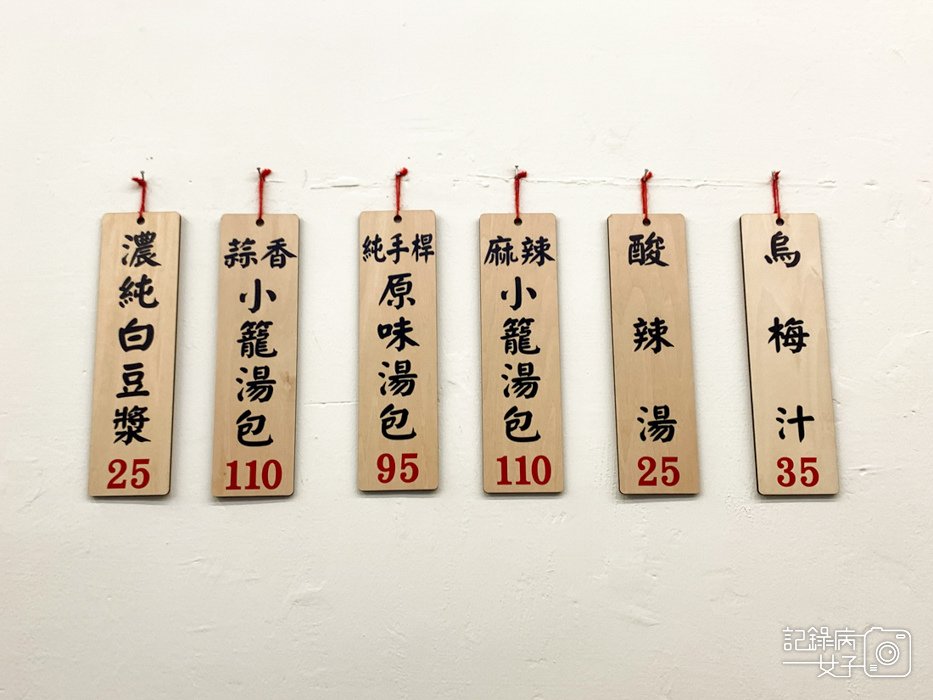 濃純白豆漿
25
蒜香
小籠湯包
110
純手桿
原味湯包
95
麻辣
小籠湯包
110
酸辣湯
25
烏梅汁
35
記錄病
女子